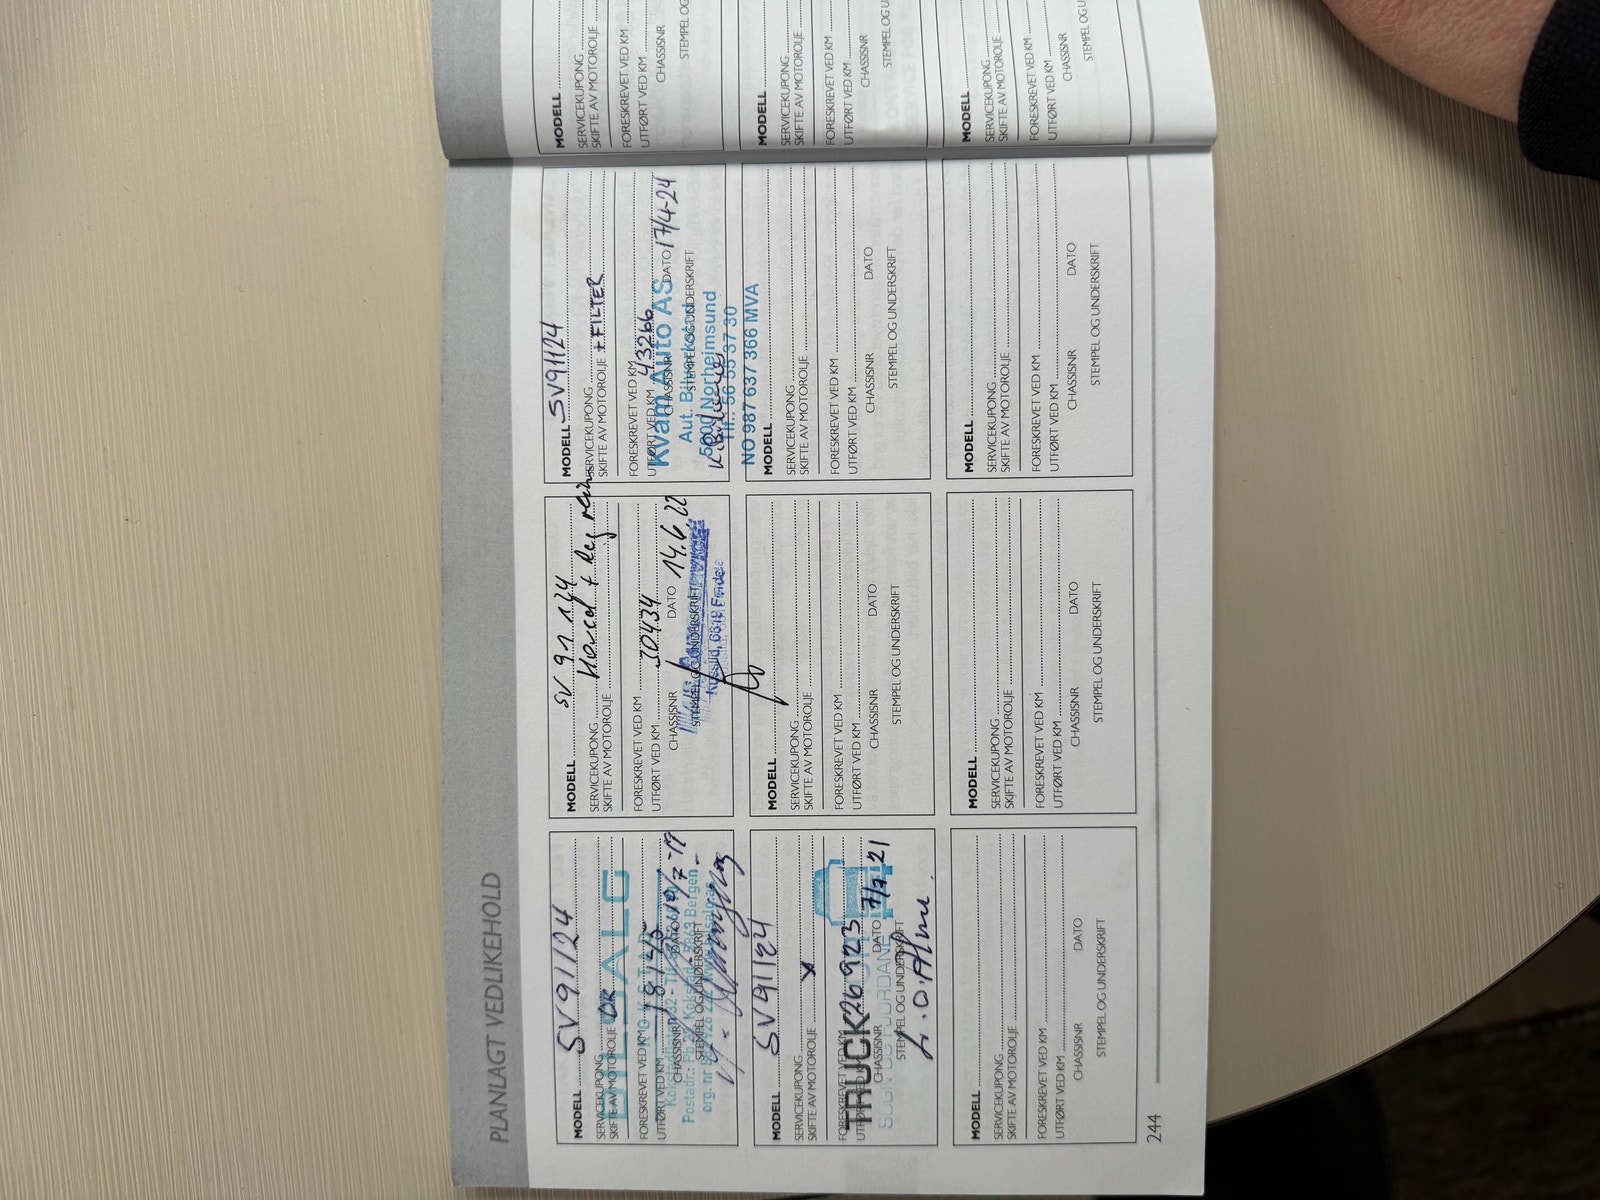 PLANLAGT VEDLIKEHOLD
MODELL SV91124
SERVICEKUPONG
SKIFTE AV MOTOROLJE OK
FORESKREVET VED KM
UTFØRT VED KM
CHASSISNR
DATO
STEMPEL OG UNDERSKRIFT
BILSALG
KOKSTAD
Bergen
org. nr
MODELL SV 91 124
SERVICEKUPONG Hoved + Reg reim
SKIFTE AV MOTOROLJE
FORESKREVET VED KM
UTFØRT VED KM 30434
CHASSISNR DATO 14.6.22
STEMPEL OG UNDERSKRIFT
MODELL SV91124
SERVICEKUPONG
SKIFTE AV MOTOROLJE + FILTER
FORESKREVET VED KM
UTFØRT VED KM 43266
CHASSISNR DATO 17/4-24
STEMPEL OG UNDERSKRIFT
Kvam Auto AS
Aut. Bilverksted
5600 Norheimsund
Tlf.: 56 55 37 30
NO 987 637 366 MVA
MODELL
SERVICEKUPONG
SKIFTE AV MOTOROLJE
FORESKREVET VED KM
UTFØRT VED KM
CHASSISNR
STEMPEL OG U
MODELL SV91124
SERVICEKUPONG
SKIFTE AV MOTOROLJE x
FORESKREVET VED KM
UTFØRT VED KM 26923
CHASSISNR DATO 7/7 21
STEMPEL OG UNDERSKRIFT
TRUCK
SOGN OG FJORDANE
MODELL
SERVICEKUPONG
SKIFTE AV MOTOROLJE
FORESKREVET VED KM
UTFØRT VED KM
CHASSISNR DATO
STEMPEL OG UNDERSKRIFT
MODELL
SERVICEKUPONG
SKIFTE AV MOTOROLJE
FORESKREVET VED KM
UTFØRT VED KM
CHASSISNR DATO
STEMPEL OG UNDERSKRIFT
MODELL
SERVICEKUPONG
SKIFTE AV MOTOROLJE
FORESKREVET VED KM
UTFØRT VED KM
CHASSISNR
STEMPEL OG U
MODELL
SERVICEKUPONG
SKIFTE AV MOTOROLJE
FORESKREVET VED KM
UTFØRT VED KM
CHASSISNR DATO
STEMPEL OG UNDERSKRIFT
MODELL
SERVICEKUPONG
SKIFTE AV MOTOROLJE
FORESKREVET VED KM
UTFØRT VED KM
CHASSISNR DATO
STEMPEL OG UNDERSKRIFT
MODELL
SERVICEKUPONG
SKIFTE AV MOTOROLJE
FORESKREVET VED KM
UTFØRT VED KM
CHASSISNR DATO
STEMPEL OG UNDERSKRIFT
MODELL
SERVICEKUPONG
SKIFTE AV MOTOROLJE
FORESKREVET VED KM
UTFØRT VED KM
CHASSISNR
STEMPEL OG U
244